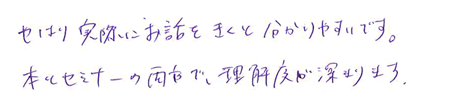 やはり実際にお話をきくと分かりやすいです。
本とセミナーの両方で、理解度が深まります。